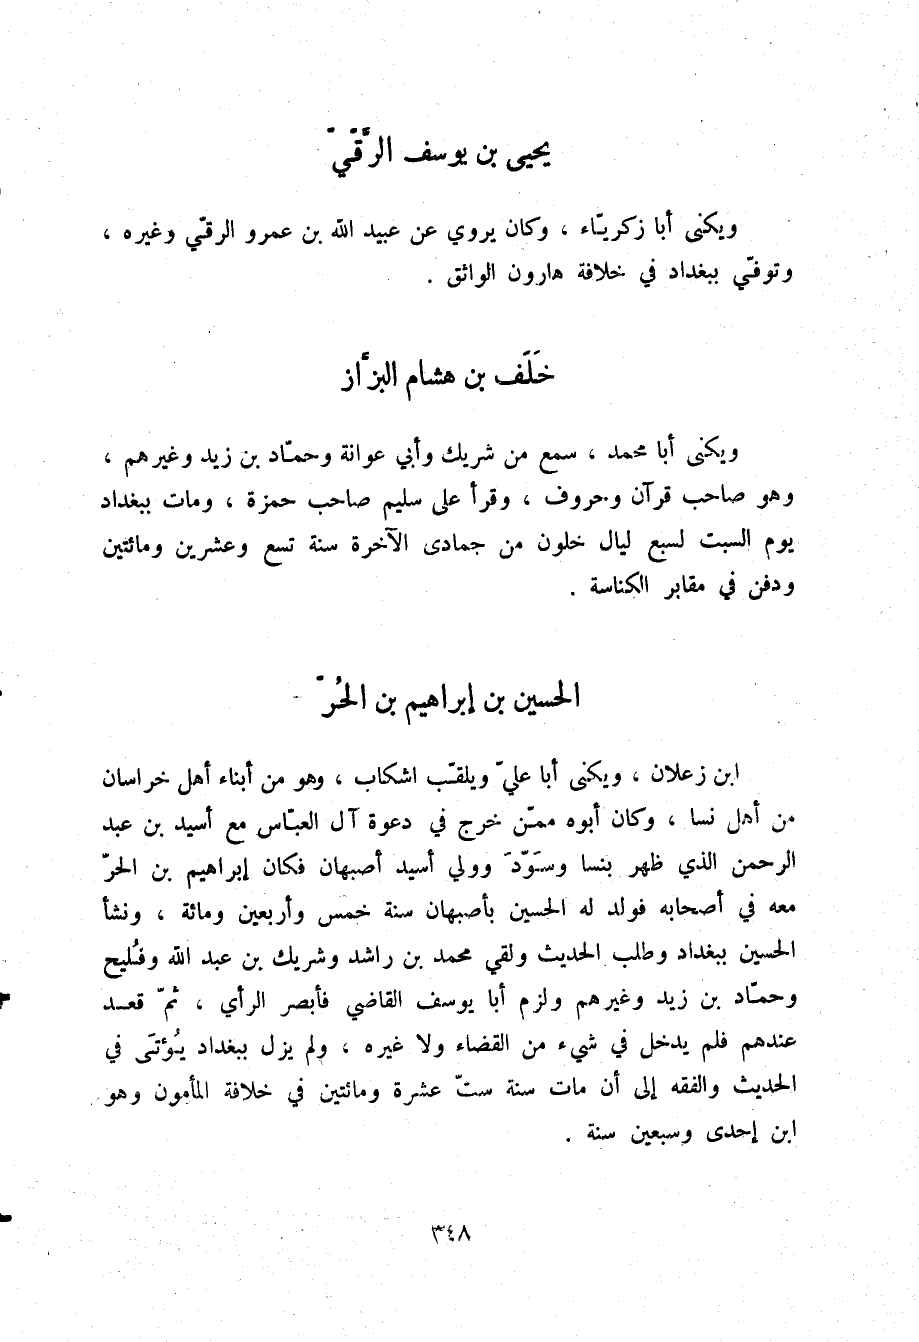 يحيى بن يوسف الرَّقّيّ
ويكنى أبا زكريّاء ، وكان يروي عن عبيد الله بن عمرو الرقّي وغيره ،
وتوفّي ببغداد في خلافة هارون الواثق .
خَلَف بن هشام البزّاز
ويكنى أبا محمد ، سمع من شريك وأبي عوانة وحمّاد بن زيد وغيرهم ،
وهو صاحب قرآن وحروف ، وقرأ على سليم صاحب حمزة ، ومات ببغداد
يوم السبت لسبع ليال خلون من جمادى الآخرة سنة تسع وعشرين ومائتين
ودفن في مقابر الكناسة .
الحسين بن إبراهيم بن الحُرّ
ابن زعلان ، ويكنى أبا عليّ ويلقّب اشكاب ، وهو من أبناء أهل خراسان
من أهل نسا ، وكان أبوه ممّن خرج في دعوة آل العبّاس مع أسيد بن عبد
الرحمن الذي ظهر بنسا وسَوّدَ وولي أسيد أصبهان فكان إبراهيم بن الحرّ
معه في أصحابه فولد له الحسين بأصبهان سنة خمس وأربعين ومائة ، ونشأ
الحسين ببغداد وطلب الحديث ولقي محمد بن راشد وشريك بن عبد الله وفُليح
وحمّاد بن زيد وغيرهم ولزم أبا يوسف القاضي فأبصر الرأي ، ثمّ قعد
عندهم فلم يدخل في شيء من القضاء ولا غيره ، ولم يزل ببغداد يُؤتَى في
الحديث والفقه إلى أن مات سنة ستّ عشرة ومائتين في خلافة المأمون وهو
ابن إحدى وسبعين سنة .
٣٤٨